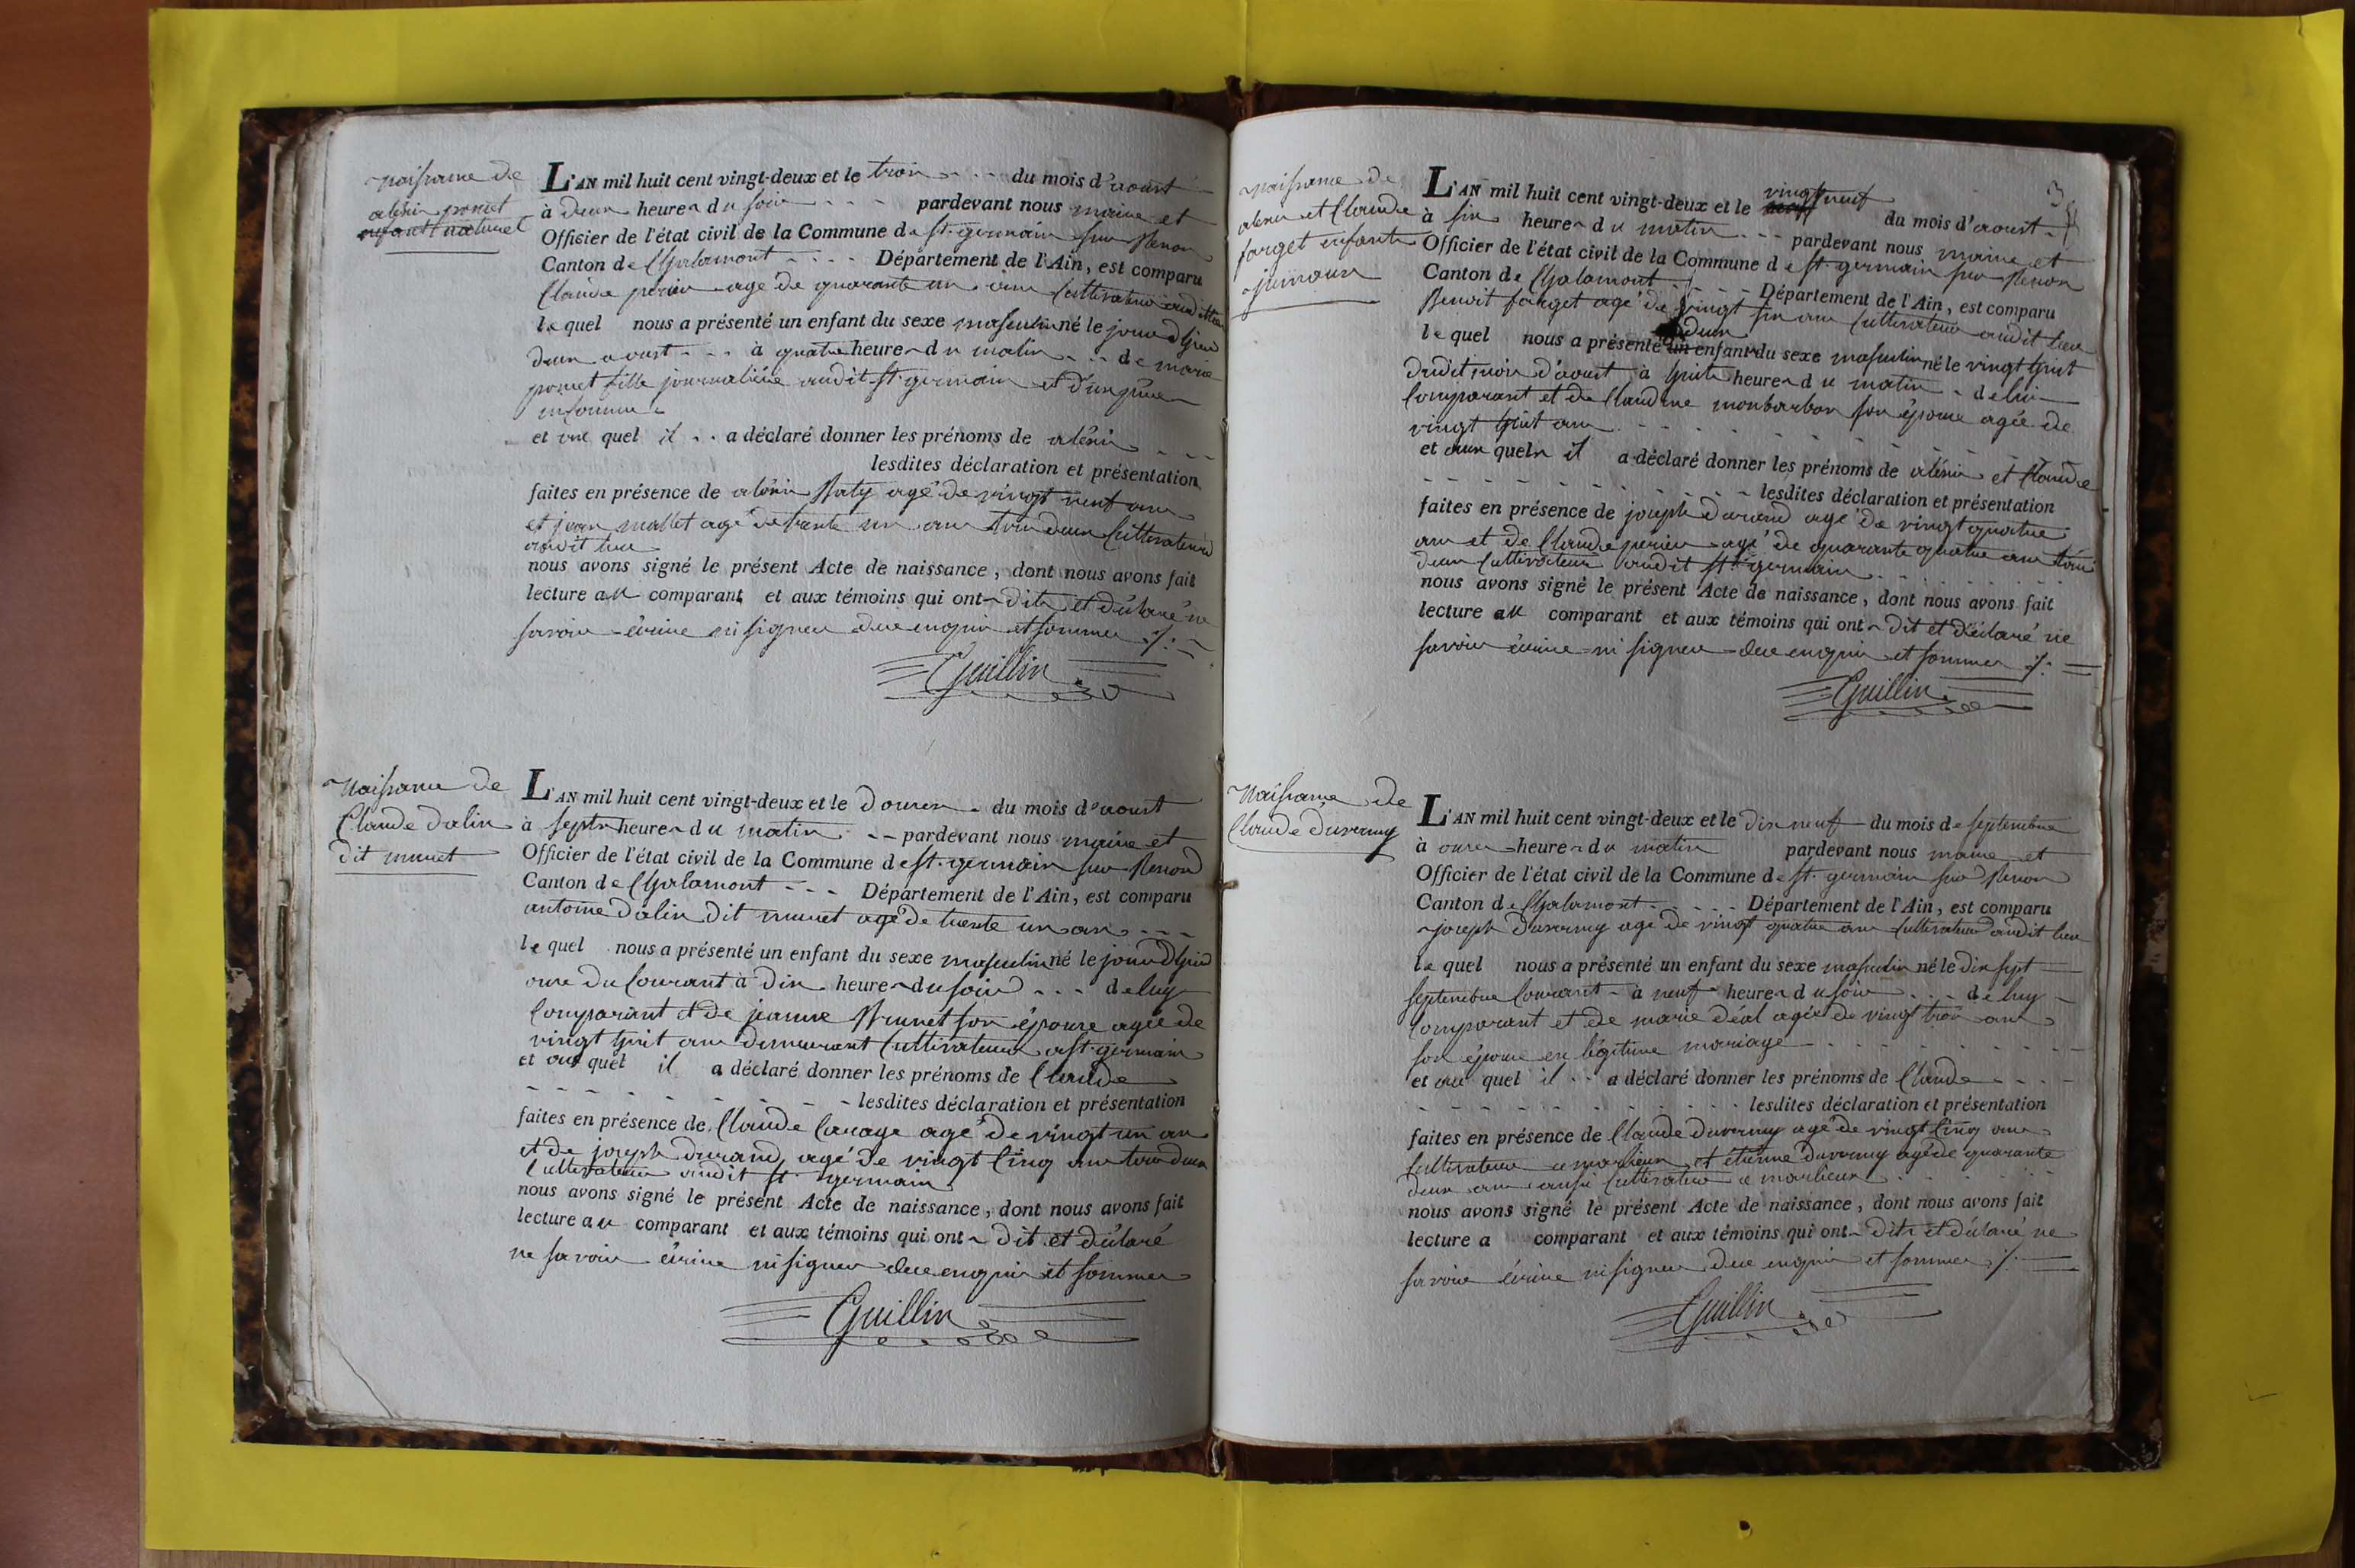 naissance de
alexis ponet
enfant naturel
L'AN mil huit cent vingt-deux et le trois du mois d'aoust
à deux heures du soir pardevant nous maire et
Officier de l'état civil de la Commune de st. germain sur Renon
Canton de Chalamont Département de l'Ain, est comparu
Claude perier agé de quarante un ans Cultivateur audit lieu
lequel nous a présenté un enfant du sexe masculin né le jour d'hier
deux aoust à quatre heures du matin de marie
ponet fille journaliére audit st. germain et d'un père
inconnu
et au quel il a déclaré donner les prénoms de alexis
lesdites déclaration et présentation
faites en présence de alexis Raty agé de vingt neuf ans
et jean mallet agé de trente un ans tous deux Cultivateurs
audit lieu
nous avons signé le présent Acte de naissance, dont nous avons fait
lecture au comparant et aux témoins qui ont dits et déclaré ne
savoir écrire ni signer de ce enquis et sommés ./.
Guillin
Naissance de
Claude dalin
dit munet
L'AN mil huit cent vingt-deux et le douze du mois d'aoust
à septs heures du matin pardevant nous maire et
Officier de l'état civil de la Commune de st. germain sur Renon
Canton de Chalamont Département de l'Ain, est comparu
antoine dalin dit munet agé de trente un ans
lequel nous a présenté un enfant du sexe masculin né le jour d'hier
onze du Courant à dix heures du soir de luy
Comparant et de jeanne Brunet son épouse agée de
vingt huit ans demeurant Cultivateurs a st. germain
et au quel il a déclaré donner les prénoms de Claude
lesdites déclaration et présentation
faites en présence de Claude agé de vingt un ans
et de joseph durand agé de vingt Cinq ans tous deux
Cultivateurs audit st. germain
nous avons signé le présent Acte de naissance, dont nous avons fait
lecture au comparant et aux témoins qui ont dit et déclaré
ne savoir écrire ni signer de ce enquis et sommés
Guillin
3
naissance de
alexis et Claude
farget enfants
jumeaux
L'AN mil huit cent vingt-deux et le vingt neuf du mois d'aoust
à six heures du matin pardevant nous maire et
Officier de l'état civil de la Commune de st. germain sur Renon
Canton de Chalamont Département de l'Ain, est comparu
Benoit farget agé de vingt six ans Cultivateur audit lieu
lequel nous a présenté deux enfants du sexe masculin né le vingt huit
dudit mois d'aoust à huits heures du matin de lui
Comparant et de Claudine monbarbon son épouse agée de
vingt huit ans
et aux quels il a déclaré donner les prénoms de alexis et Claude
lesdites déclaration et présentation
faites en présence de joseph durand agé de vingt quatre
ans et de Claude perier agé de quarante quatre ans tous
deux Cultivateurs audit st. germain
nous avons signé le présent Acte de naissance, dont nous avons fait
lecture au comparant et aux témoins qui ont dit et déclaré ne
savoir écrire ni signer de ce enquis et sommés ./.
Guillin
Naissance de
Claude duverney
L'AN mil huit cent vingt-deux et le dix neuf du mois de septembre
à onze heures du matin pardevant nous maire et
Officier de l'état civil de la Commune de st. germain sur Renon
Canton de Chalamont Département de l'Ain, est comparu
joseph duverney agé de vingt quatre ans Cultivateur audit lieu
lequel nous a présenté un enfant du sexe masculin né le dix sept
septembre Courant à neuf heures du soir de luy
Comparant et de marie déal agée de vingt trois ans
son épouse en légitime mariage
et au quel il a déclaré donner les prénoms de Claude
lesdites déclaration et présentation
faites en présence de Claude duverney agé de vingt Cinq ans
Cultivateur a marlieux et étienne duverney agé de quarante
deux ans aussi Cultivateur a marlieux
nous avons signé le présent Acte de naissance, dont nous avons fait
lecture a comparant et aux témoins qui ont dits et déclaré ne
savoir écrire ni signer de ce enquis et sommés ./.
Guillin